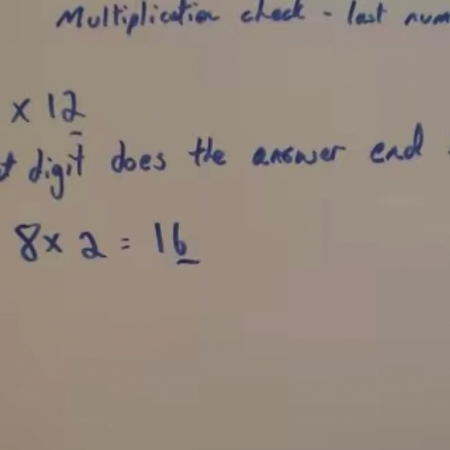 Multiplication check - last num
x 12
digit does the answer end
8 x 2 = 16